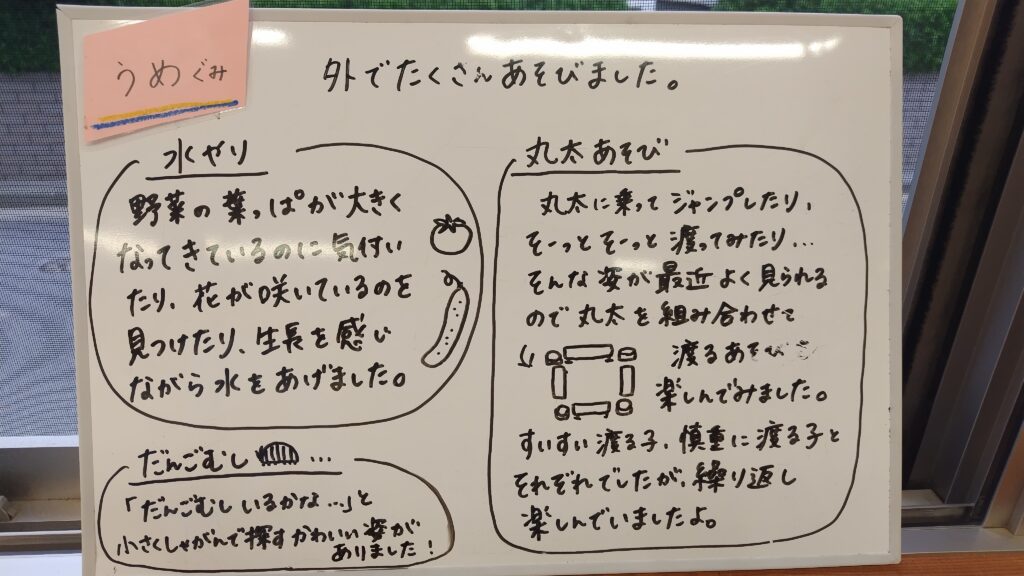 うめぐみ
外でたくさんあそびました。
水やり
野菜の葉っぱが大きく
なってきているのに気付い
たり、花が咲いているのを
見つけたり、生長を感じ
ながら水をあげました。
だんごむし ...
「だんごむしいるかな...」と
小さくしゃがんで探すかわいい姿が
ありました！
丸太あそび
丸太に乗ってジャンプしたり、
そーっとそーっと渡ってみたり...
そんな姿が最近よく見られる
ので丸太を組み合わせて
渡るあそび
楽しんでみました。
すいすい渡る子、慎重に渡る子と
それぞれでしたが、繰り返し
楽しんでいましたよ。